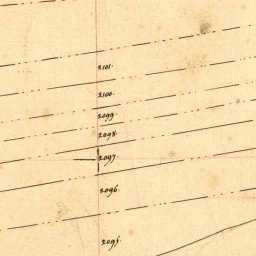 2101.
2100.
2099.
2098.
2097.
2096.
2095.